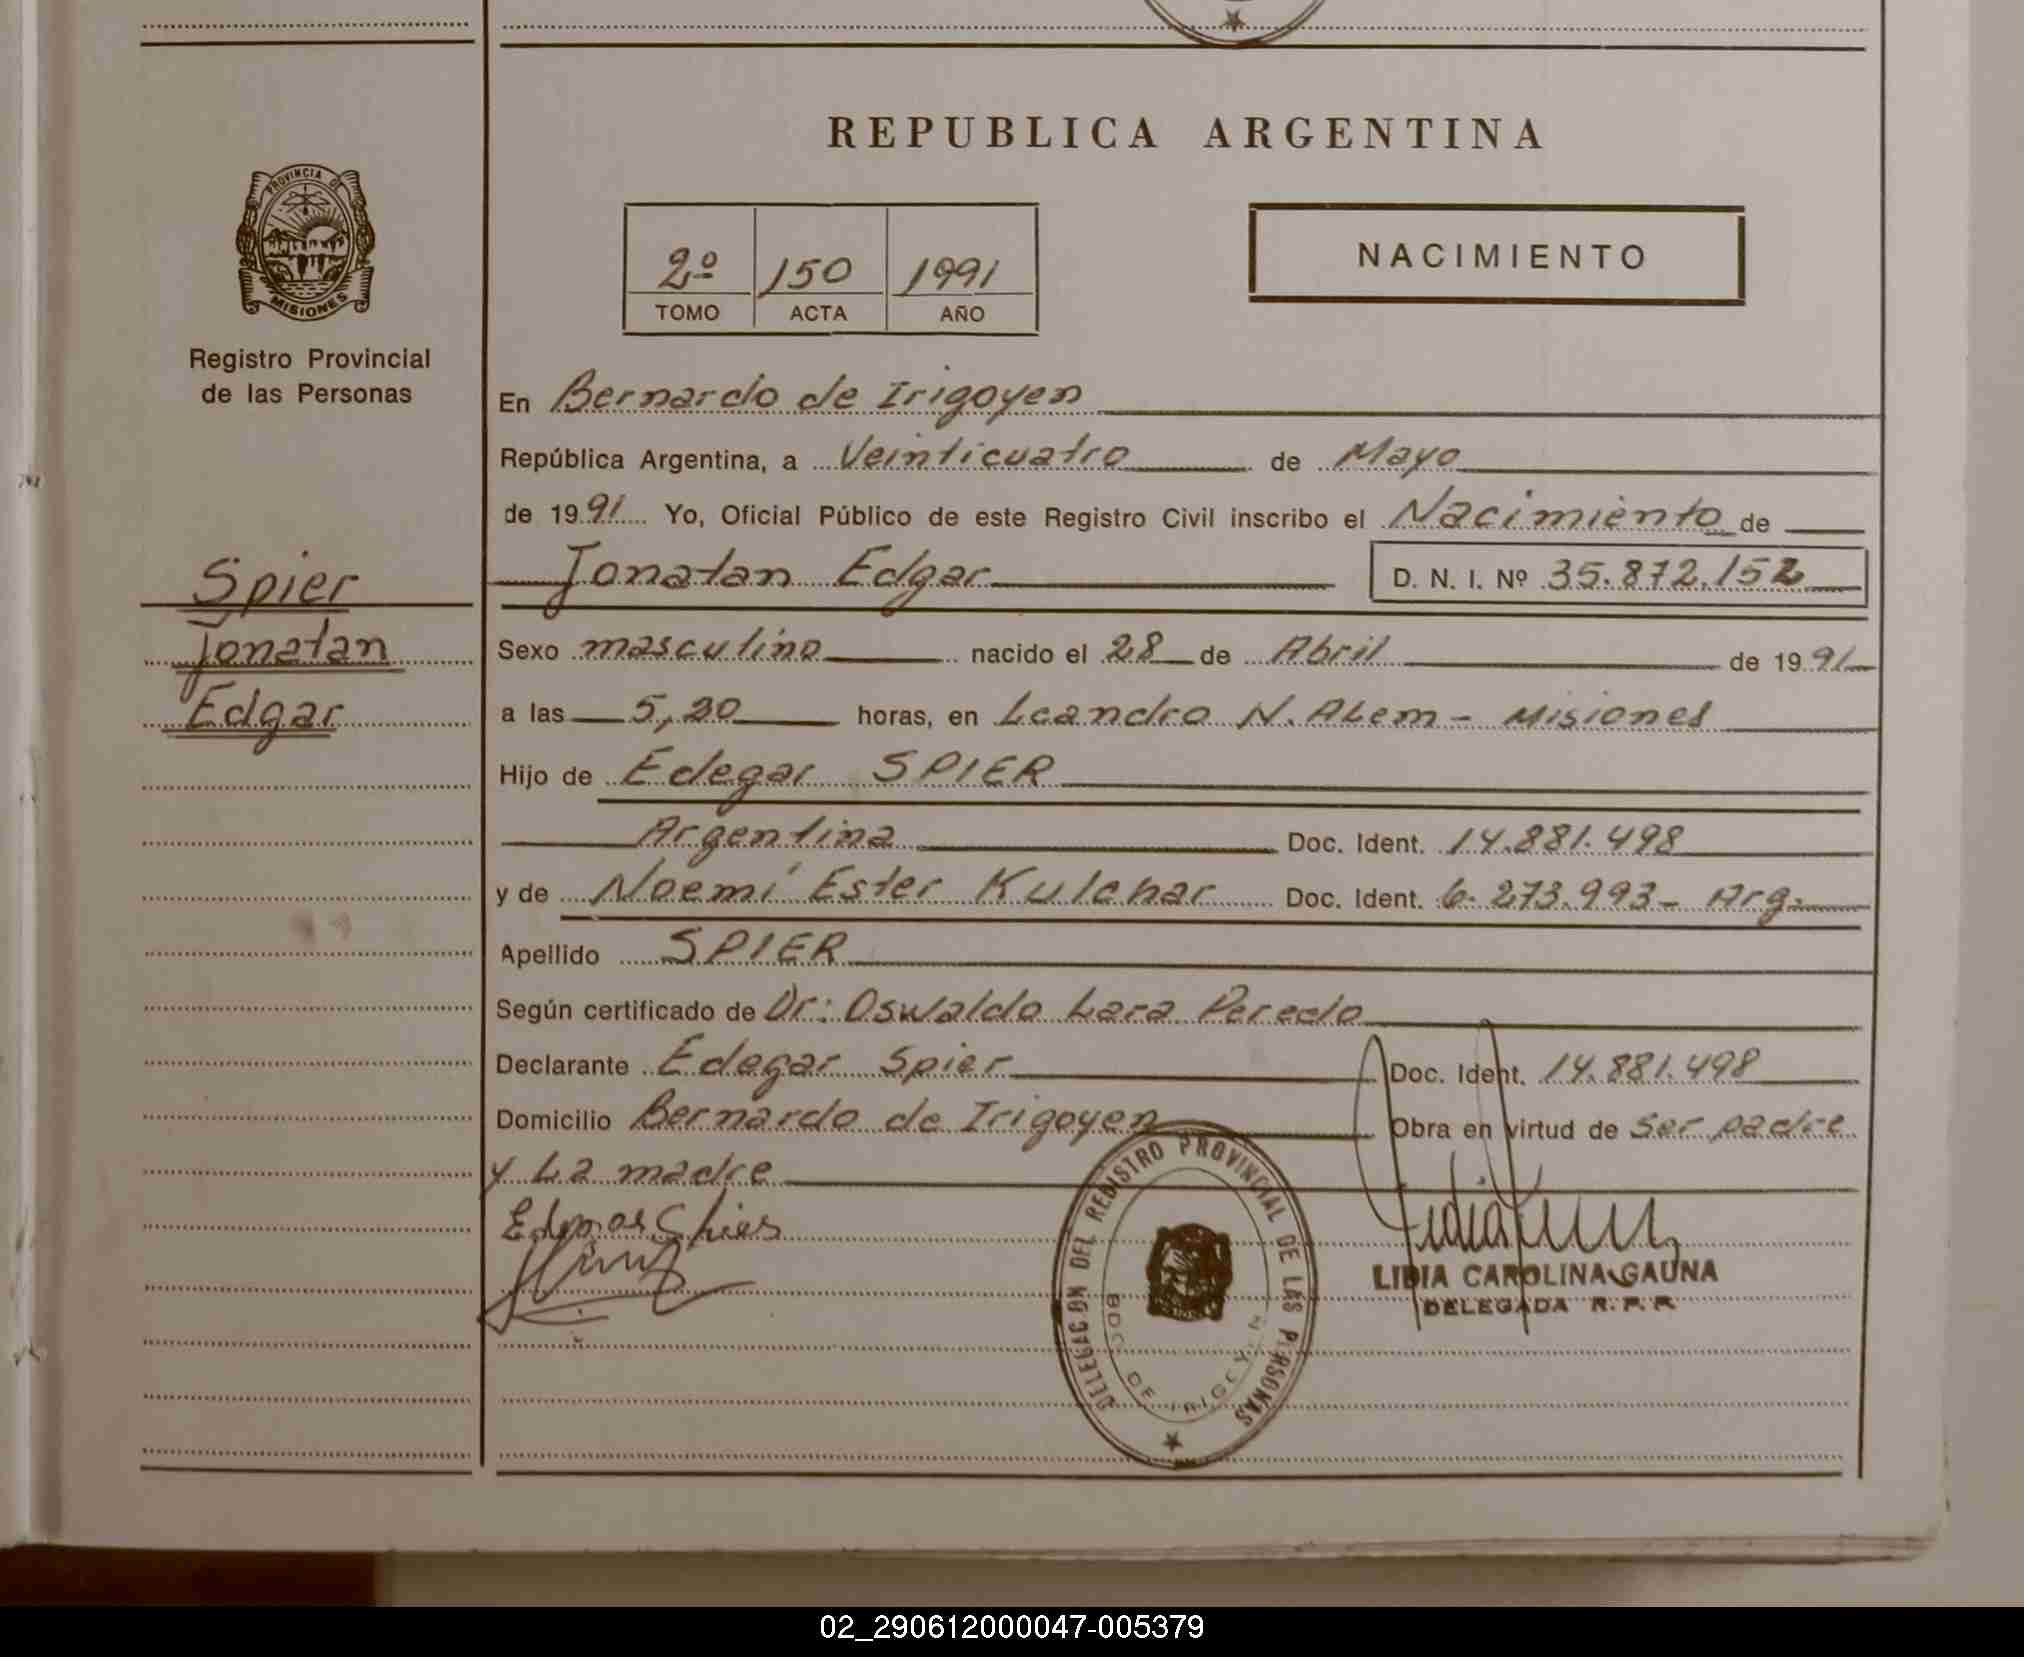 REPUBLICA ARGENTINA
PROVINCIA DE
MISIONES
Registro Provincial
de las Personas
2º 150 1991
TOMO ACTA AÑO
NACIMIENTO
En Bernardo de Irigoyen
República Argentina, a Veinticuatro de Mayo
de 1991 Yo, Oficial Público de este Registro Civil inscribo el Nacimiento de
Jonatan Edgar D. N. I. Nº 35.872.152
Spier
Jonatan
Edgar
Sexo masculino nacido el 28 de Abril de 1991
a las 5,20 horas, en Leandro N. Alem - Misiones
Hijo de Edegar SPIER
Argentina Doc. Ident. 14.881.498
y de Noemí Ester Kulchar Doc. Ident. 6.273.993- Arg.
Apellido SPIER
Según certificado de Dr: Oswaldo Lara Peredo
Declarante Edegar Spier Doc. Ident. 14.881.498
Domicilio Bernardo de Irigoyen Obra en virtud de ser padre
y La madre
DELEGACION DEL REGISTRO PROVINCIAL DE LAS PERSONAS
BDO. DE IRIGOYEN
LIDIA CAROLINA GAUNA
DELEGADA R. P. P.
02_290612000047-005379